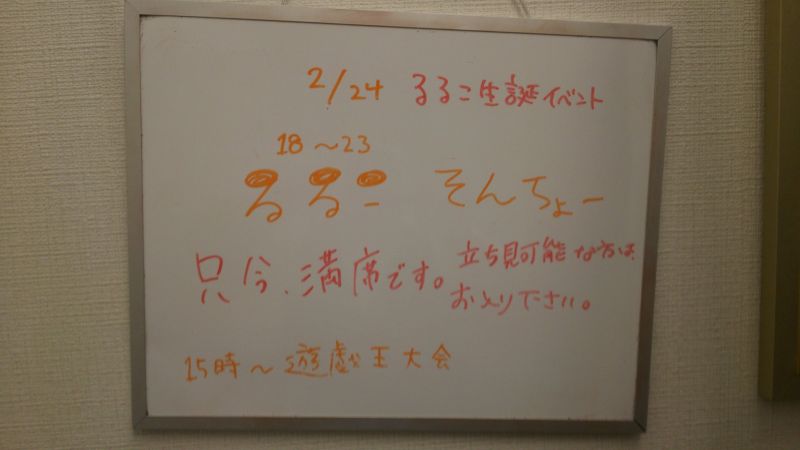 2/24 るるこ生誕イベント
18～23
るるこ そんちょー
只今、満席です。
立ち見可能な方は、
お入り下さい。
15時～遊戯王大会